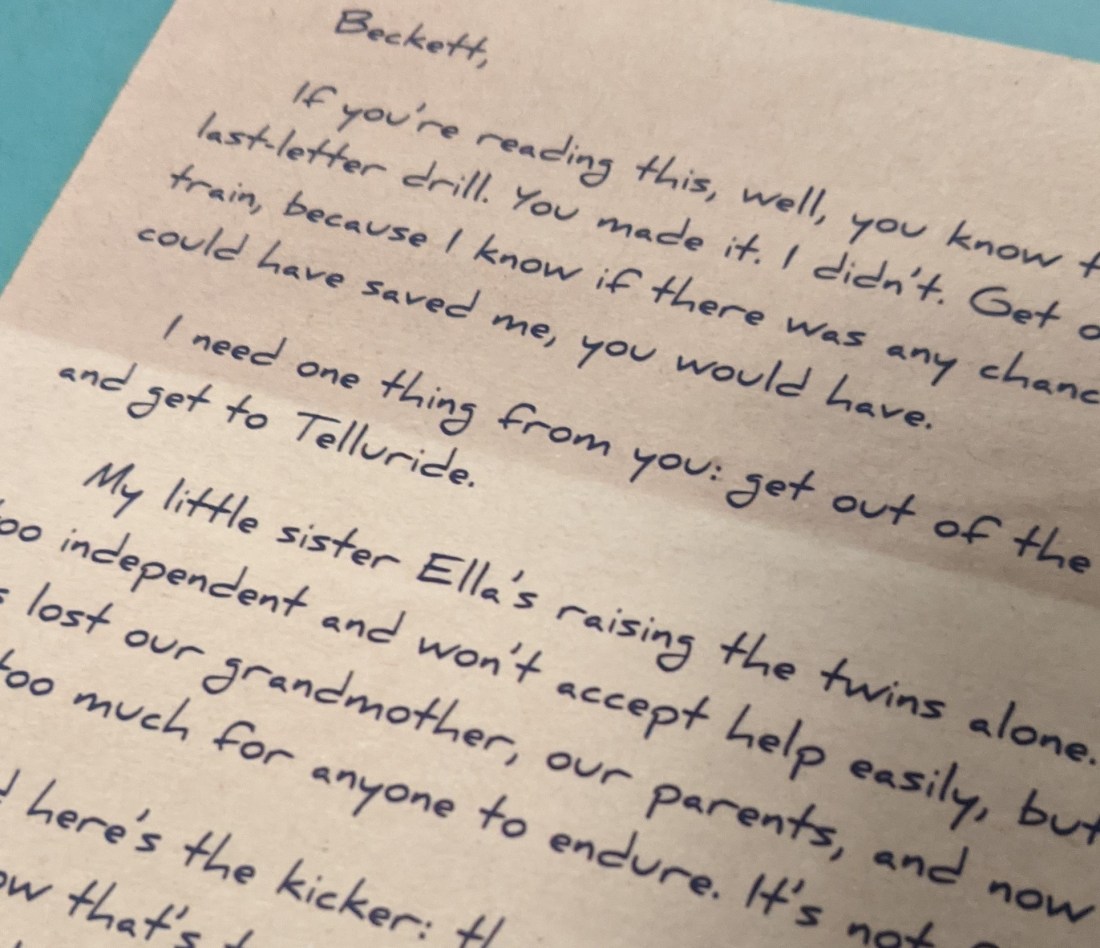 Beckett,
If you're reading this, well, you know
last-letter drill. You made it. I didn't. Get
train, because I know if there was any
could have saved me, you would have.
I need one thing from you: get out of the
and get to Telluride.
My little sister Ella's raising the twins alone.
independent and won't accept help easily, but
lost our grandmother, our parents, and now
too much for anyone to endure. It's not
here's the kicker:
that's